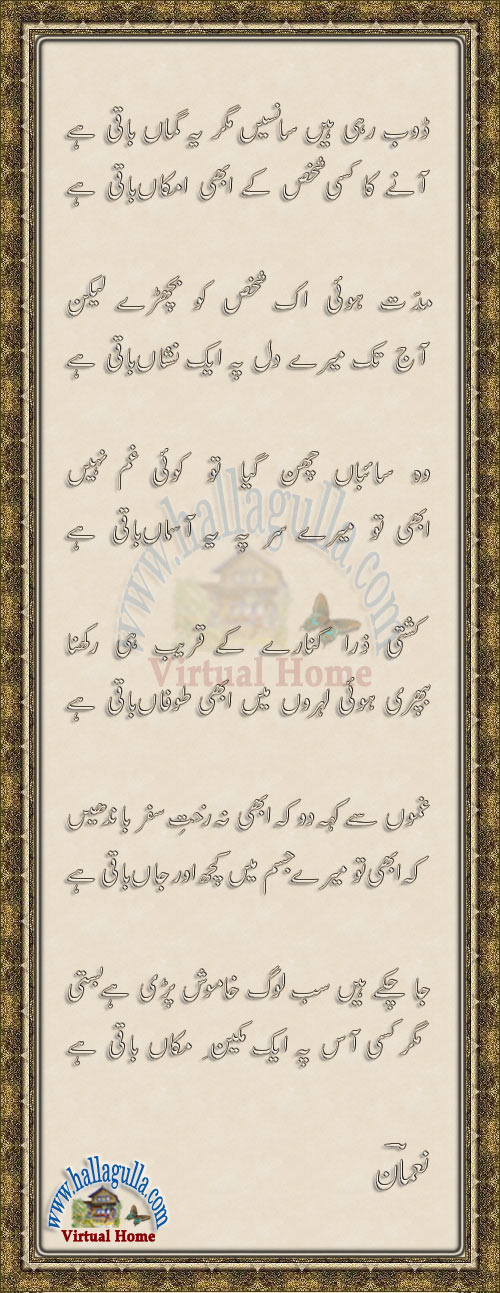 ڈوب رہی ہیں سانسیں مگر یہ گماں باقی ہے
آنے کا کسی شخص کے ابھی امکاں باقی ہے
مدّت ہوئی اک شخص کو بچھڑے لیکن
آج تک میرے دل پہ ایک نشاں باقی ہے
وہ سائباں چھن گیا تو کوئی غم نہیں
ابھی تو میرے سر پہ یہ آسماں باقی ہے
www.hallagulla.com
کشتی ذرا کنارے کے قریب ہی رکھنا
Virtual Home
بپھری ہوئی لہروں میں ابھی طوفاں باقی ہے
غموں سے کہہ دو کہ ابھی نہ رختِ سفر باندھیں
کہ ابھی تو میرے جسم میں کچھ اور جاں باقی ہے
جا چکے ہیں سب لوگ خاموش پڑی ہے بستی
مگر کسی آس پہ ایک مکینِ مکاں باقی ہے
نعمان
www.hallagulla.com
Virtual Home